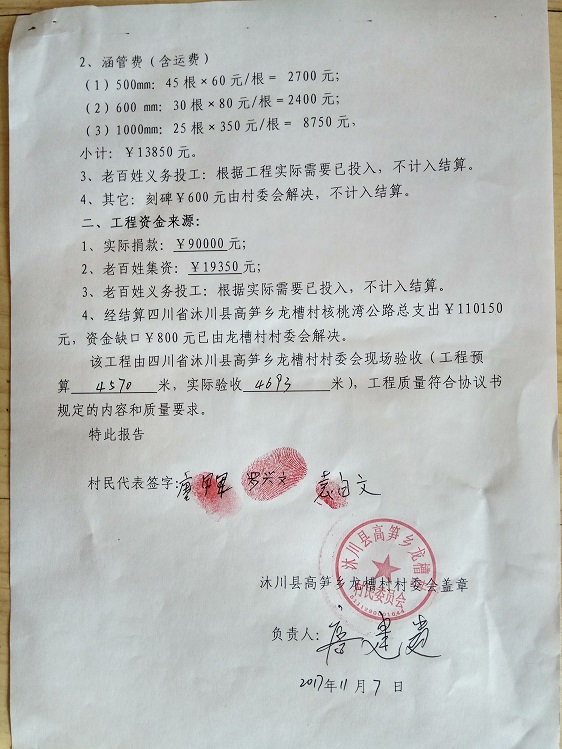 2、涵管费（含运费）
（1）500mm：45根×60元/根＝ 2700元；
（2）600 mm：30根×80元/根＝2400元；
（3）1000mm：25根×350元/根＝ 8750元，
小计：￥13850元。
3、老百姓义务投工：根据工程实际需要已投入，不计入结算。
4、其它：刻碑￥600元由村委会解决，不计入结算。
二、工程资金来源：
1、实际捐款：￥90000元；
2、老百姓集资：￥19350元；
3、老百姓义务投工：根据实际需要已投入，不计入结算。
4、经结算四川省沐川县高笋乡龙槽村核桃湾公路总支出￥110150
元，资金缺口￥800元已由龙槽村村委会解决。
该工程由四川省沐川县高笋乡龙槽村村委会现场验收（工程预
算4570米，实际验收4693米），工程质量符合协议书
规定的内容和质量要求。
特此报告
村民代表签字：
沐川县高笋乡龙槽村
村民委员会
沐川县高笋乡龙槽村村委会盖章
负责人：
2017年11月7日